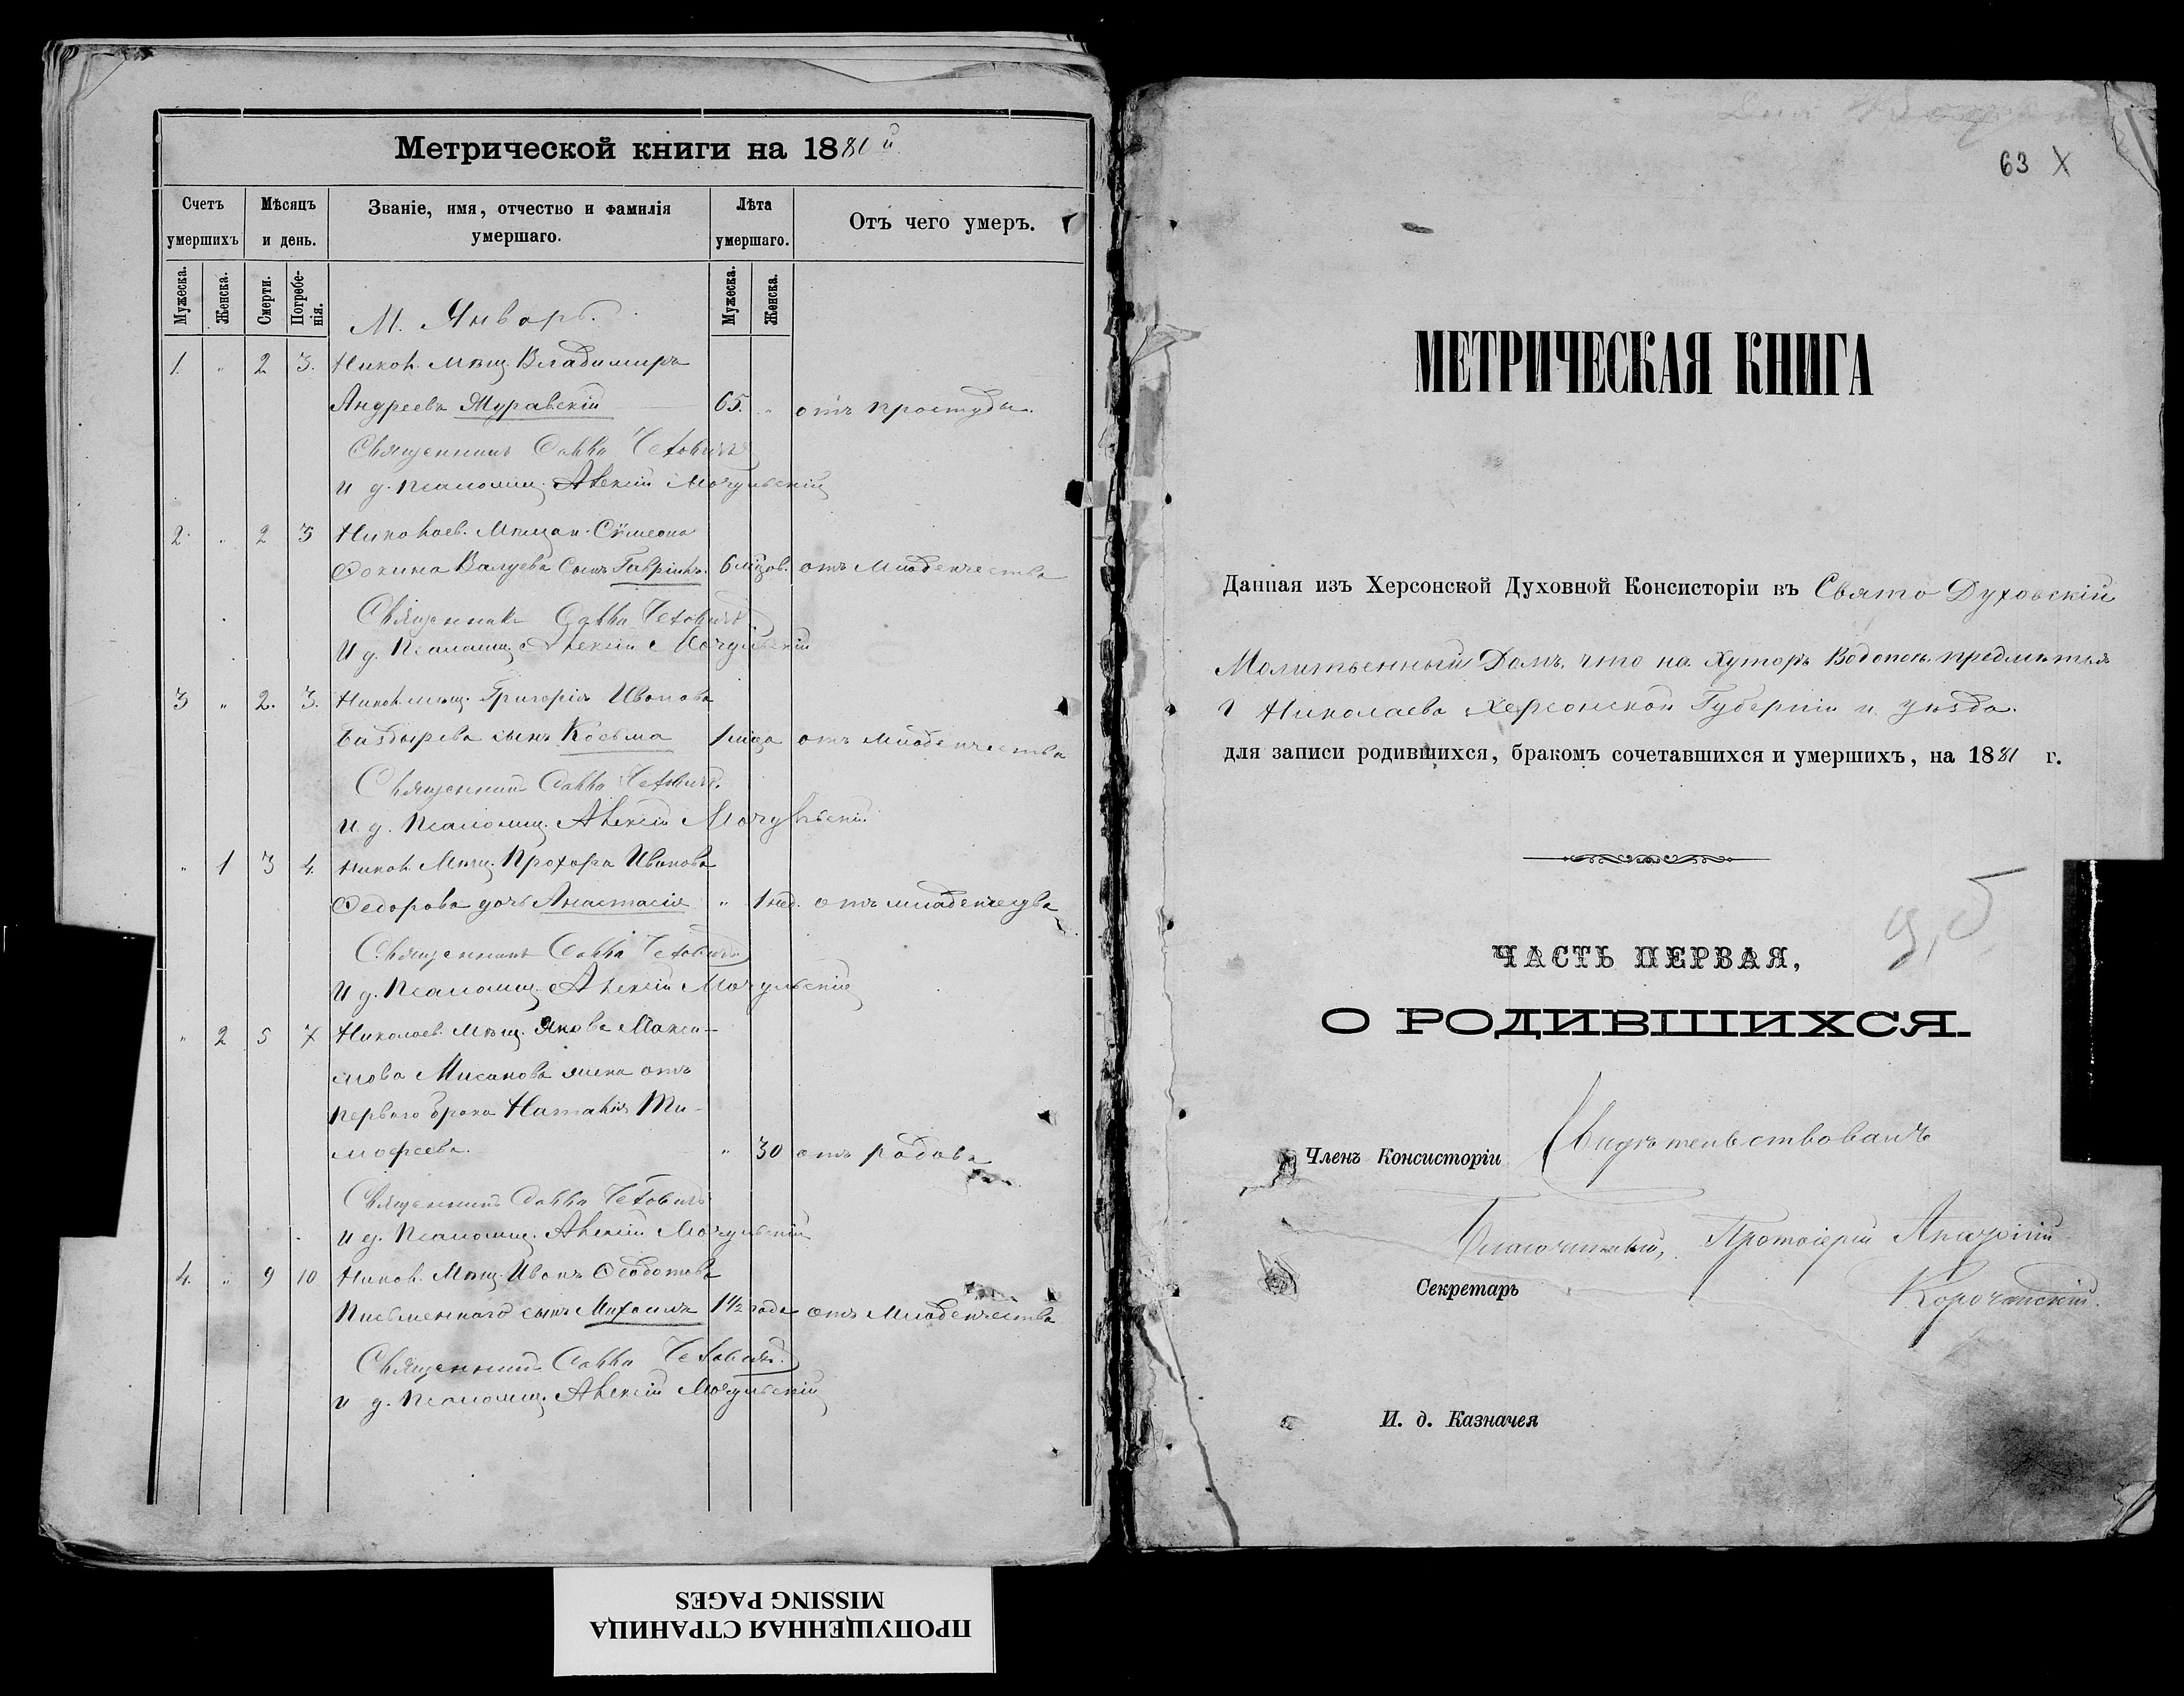 Метрической книги на 1881й
Счетъ умершихъ
Мѣсяцъ и день.
Званіе, имя, отчество и фамилія умершаго.
Лѣта умершаго.
Отъ чего умеръ.
Мужеска.
Женска.
Смерти.
Погребенія.
Мужеска.
Женска.
М. Январь.
1. " 2 3. Никол. мѣщ. Владимиръ
Андреевъ Журавскій 65. " отъ простуды.
Священникъ Савва
И д. псаломщ. Алексій Мочульскій
2. " 2 3 Николаев. мѣщан. Сѵмеона
Валуева сынъ Гавріилъ. 6 мѣсов. отъ младенчества
Священникъ Савва
И д. Псаломщ. Алексій Мочульскій
3 " 2. 3. Никол. мѣщ. Григорія Иванова
сынъ Косьма 1 мѣсца отъ младенчества
Священникъ Савва
И д. Псаломщ. Алексій Мочульскій
" 1 3 4. Никол. Мѣщ. Прохора Иванова
Федорова дочь Анастасія " 1 нед. отъ младенчества
Священникъ Савва
И д. Псаломщ. Алексій Мочульскій
" 2 5 7 Николаев. Мѣщ. Якова Макси-
мова жена отъ
первого брака Наталія Ти-
мофеева. " 30 отъ родовъ
Священникъ Савва
И д. Псаломщ. Алексій Мочульскій
4. " 9 10 Никол. Мѣщ. Иванъ Ѳедотова
Письменного сынъ Михаилъ 1 1/2 года отъ младенчества
Священникъ Савва
И д. Псаломщ. Алексій Мочульскій
ПРОПУЩЕННАЯ СТРАНИЦА
MISSING PAGES
63 X
МЕТРИЧЕСКАЯ КНИГА
Данная изъ Херсонской Духовной Консисторіи въ Свято Духовскій
Молитвенный Домъ, что на хуторѣ Водопой предмѣстья
г Николаева Херсонской Губерніи и уѣзда.
для записи родившихся, бракомъ сочетавшихся и умершихъ, на 1881 г.
ЧАСТЬ ПЕРВАЯ,
О РОДИВШИХСЯ.
Членъ Консисторіи Свидѣтельствовалъ
Благочинный, Протоіерей
Секретарь Корочанскій.
И. д. Казначея